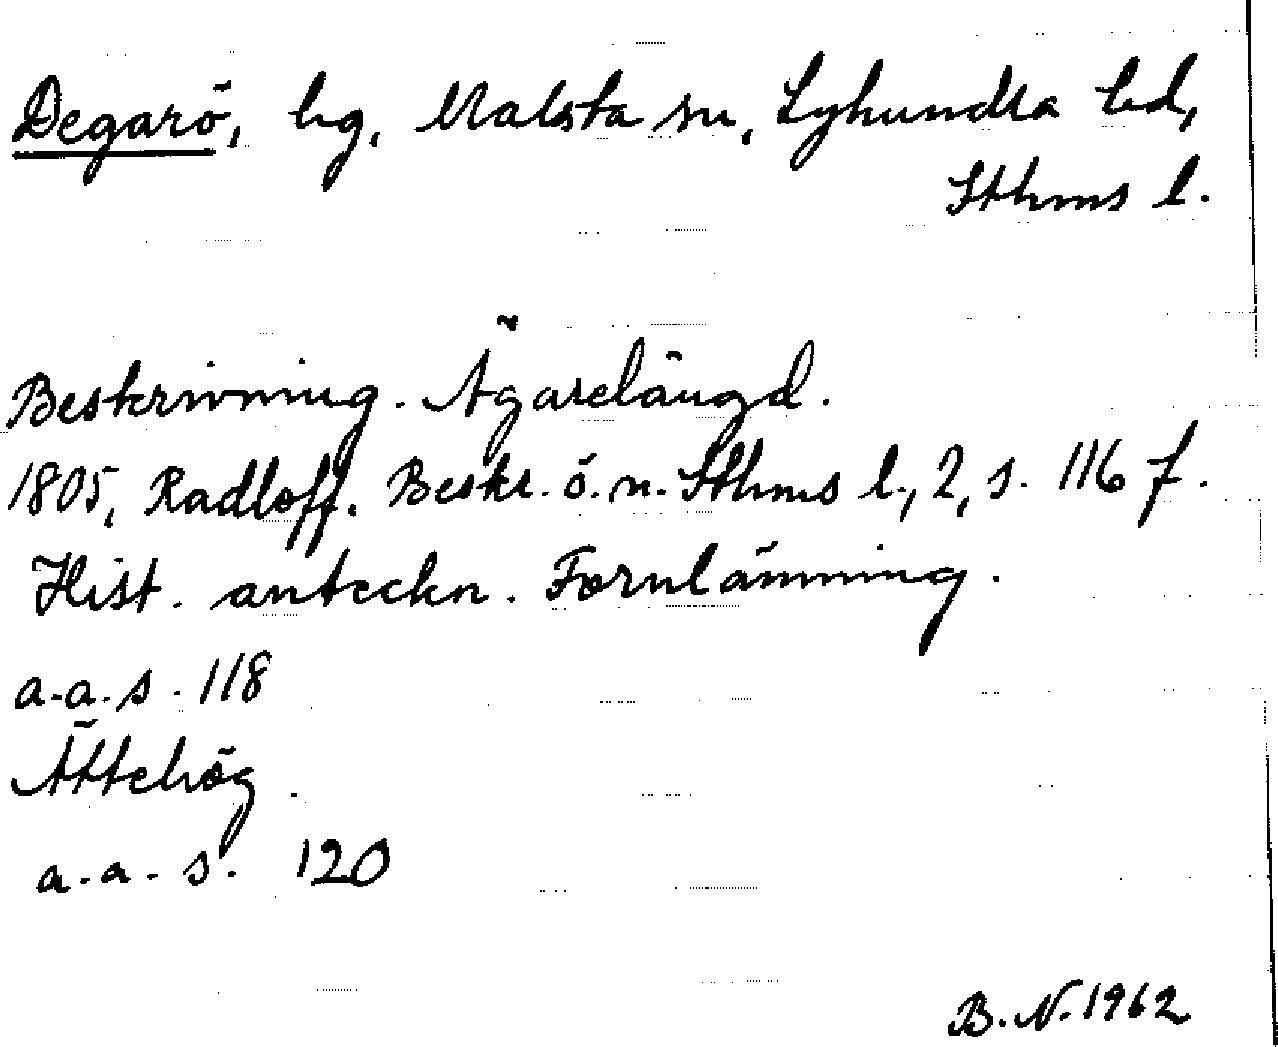 Degarö, hg, Malsta sn, Lyhundra hd,
Sthms l.
Beskrivning. Ägarelängd.
1805, Radloff. Beskr. ö. n. Sthms l., 2, s. 116 f.
Hist. anteckn. Fornlämning.
a.a.s. 118
Ättehög.
a.a.s. 120
B.N. 1962